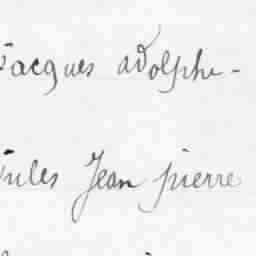 Jacques adolphe -
Jules Jean pierre